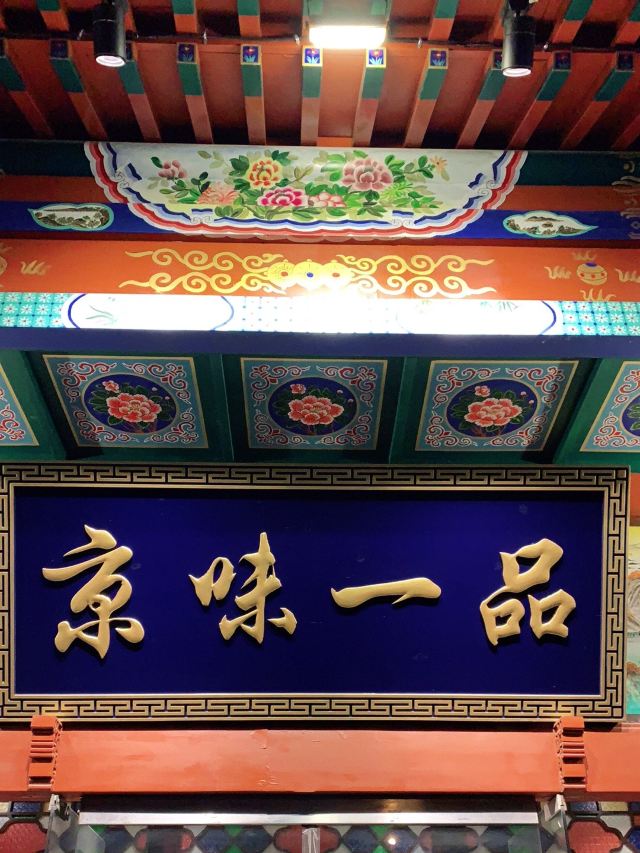 京味一品